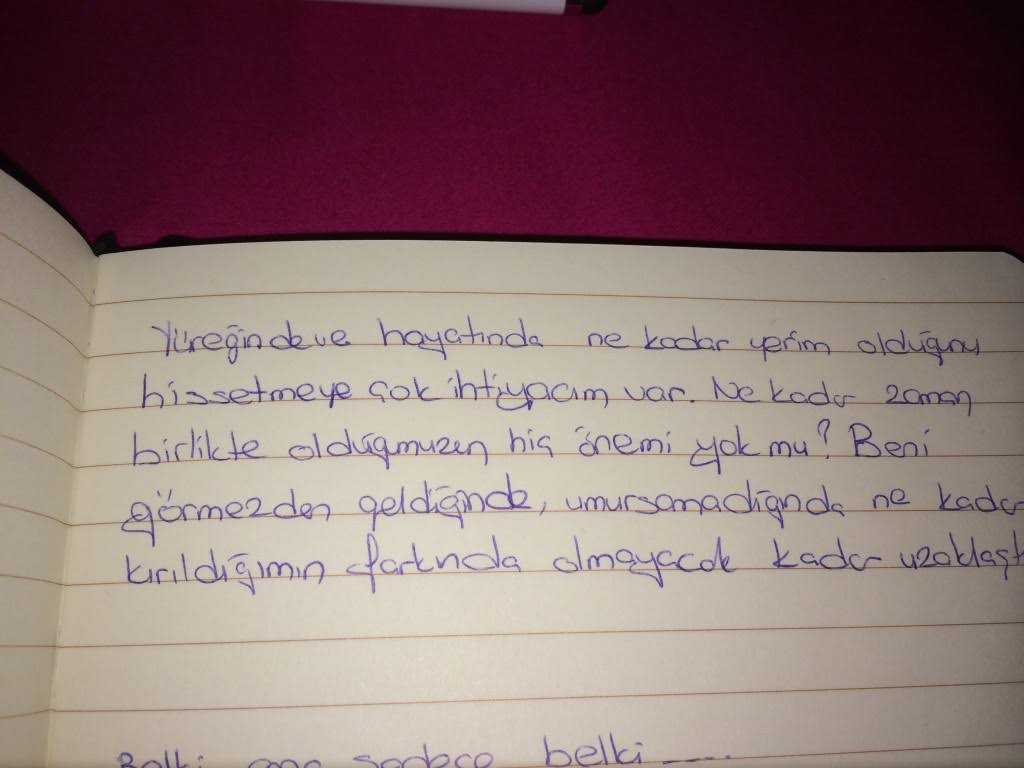 Yüreğinde ve hayatında ne kadar yerim olduğunu
hissetmeye çok ihtiyacım var. Ne kadar zaman
birlikte olduğumuzun hiç önemi yok mu? Beni
görmezden geldiğinde, umursamadığında ne kadar
kırıldığımın farkında olmayacak kadar uzaklaşt
Belki ama sadece belki....